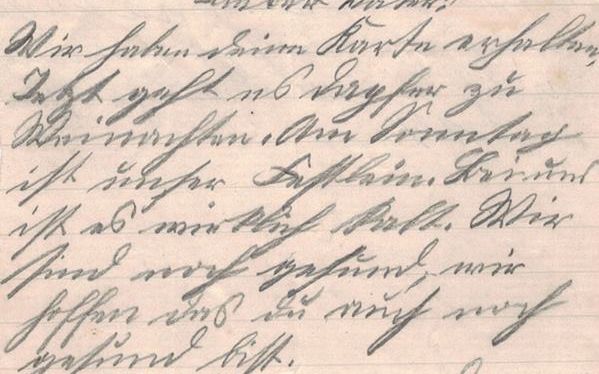 Lieber Vater!
Wir haben deine Karte erhalten.
Jetzt geht es dapfer zu
Weinachten. Am Sonntag
ist unser Festlein. Bei uns
ist es wirklich kalt. Wir
sind noch gesund, wir
hoffen das du auch noch
gesund bist.